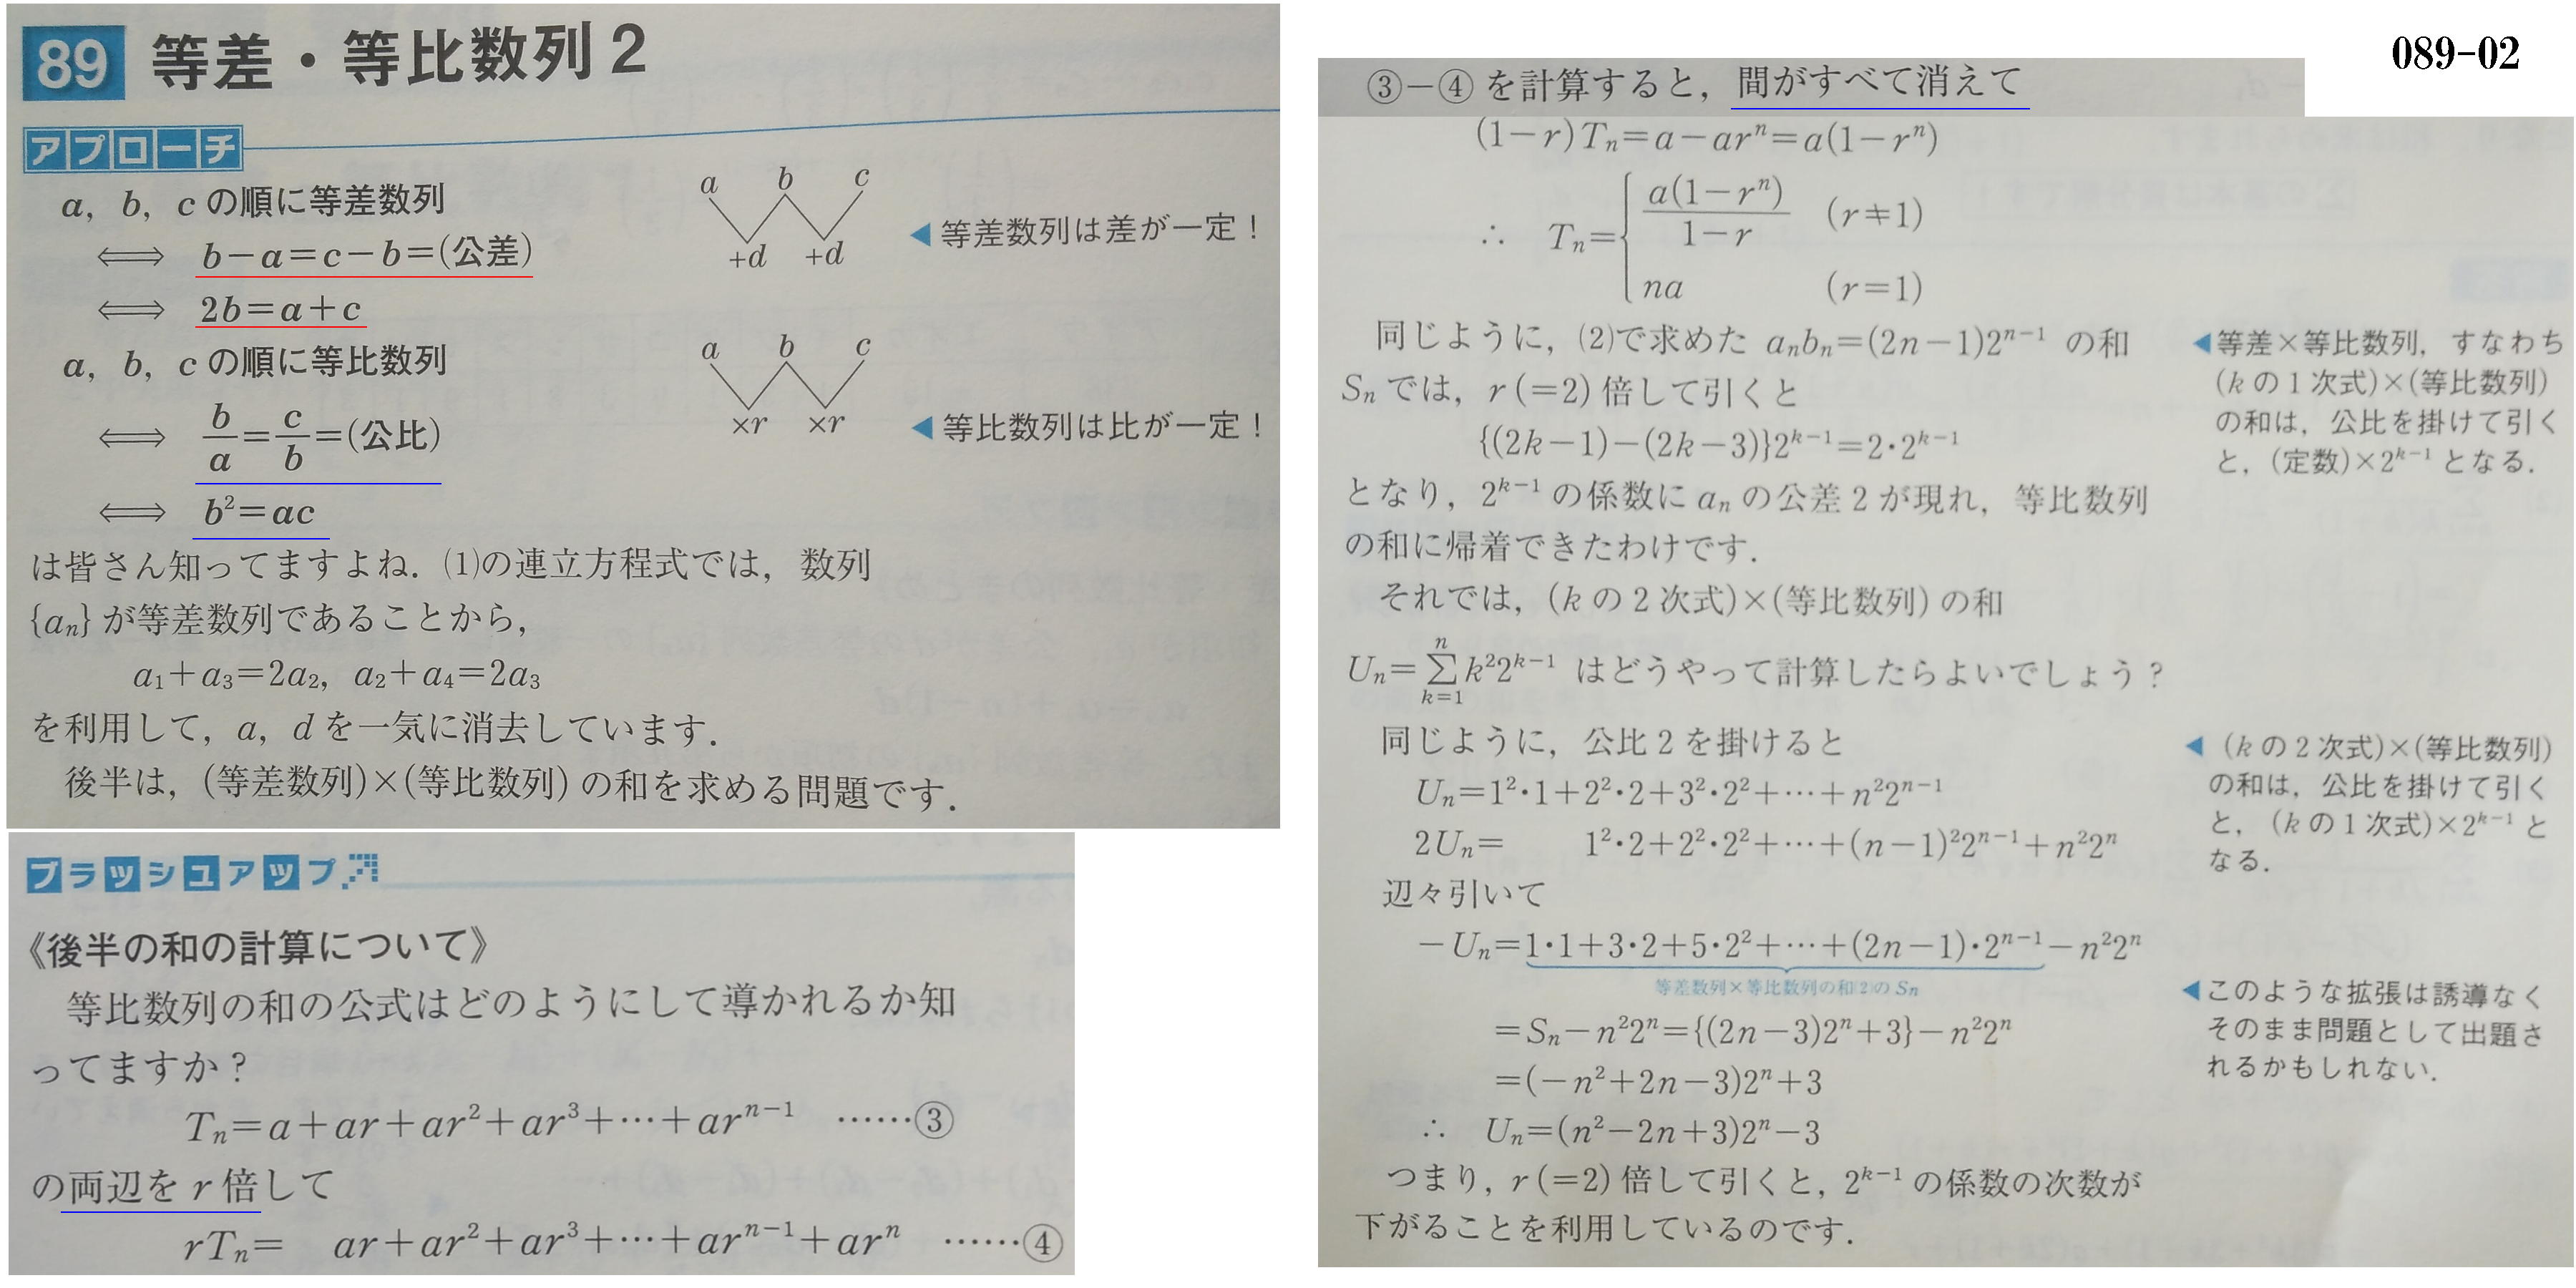 089-02
89 等差・等比数列2
アプローチ
a, b, c の順に等差数列
⟺ b−a=c−b=(公差)
⟺ 2b=a+c
a b c
+d +d
◀等差数列は差が一定！
a, b, c の順に等比数列
⟺ b/a=c/b=(公比)
⟺ b²=ac
a b c
×r ×r
◀等比数列は比が一定！
は皆さん知ってますよね．(1)の連立方程式では，数列
{aₙ}が等差数列であることから，
a₁+a₃=2a₂, a₂+a₄=2a₃
を利用して，a, d を一気に消去しています．
後半は，(等差数列)×(等比数列) の和を求める問題です．
ブラッシュアップ
《後半の和の計算について》
等比数列の和の公式はどのようにして導かれるか知
ってますか？
Tₙ=a+ar+ar²+ar³+⋯+arⁿ⁻¹ ……③
の両辺を r 倍して
rTₙ= ar+ar²+ar³+⋯+arⁿ⁻¹+arⁿ ……④
③−④ を計算すると，間がすべて消えて
(1−r)Tₙ=a−arⁿ=a(1−rⁿ)
∴ Tₙ={ a(1−rⁿ)/(1−r) (r≠1)
na (r=1)
同じように，(2)で求めた aₙbₙ=(2n−1)2ⁿ⁻¹ の和
Sₙ では，r(=2) 倍して引くと
{(2k−1)−(2k−3)}2ᵏ⁻¹=2・2ᵏ⁻¹
となり，2ᵏ⁻¹ の係数に aₙ の公差2が現れ，等比数列
の和に帰着できたわけです．
◀等差×等比数列，すなわち
(k の1次式)×(等比数列)
の和は，公比を掛けて引く
と，(定数)×2ᵏ⁻¹ となる．
それでは，(k の2次式)×(等比数列) の和
Uₙ=∑ₖ₌₁ⁿ k²2ᵏ⁻¹ はどうやって計算したらよいでしょう？
同じように，公比2を掛けると
Uₙ=1²・1+2²・2+3²・2²+⋯+n²2ⁿ⁻¹
2Uₙ= 1²・2+2²・2²+⋯+(n−1)²2ⁿ⁻¹+n²2ⁿ
◀(k の2次式)×(等比数列)
の和は，公比を掛けて引く
と，(k の1次式)×2ᵏ⁻¹ と
なる．
辺々引いて
−Uₙ=1・1+3・2+5・2²+⋯+(2n−1)・2ⁿ⁻¹−n²2ⁿ
等差数列×等比数列の和(2)の Sₙ
=Sₙ−n²2ⁿ={(2n−3)2ⁿ+3}−n²2ⁿ
=(−n²+2n−3)2ⁿ+3
∴ Uₙ=(n²−2n+3)2ⁿ−3
◀このような拡張は誘導なく
そのまま問題として出題さ
れるかもしれない．
つまり，r(=2) 倍して引くと，2ᵏ⁻¹ の係数の次数が
下がることを利用しているのです．